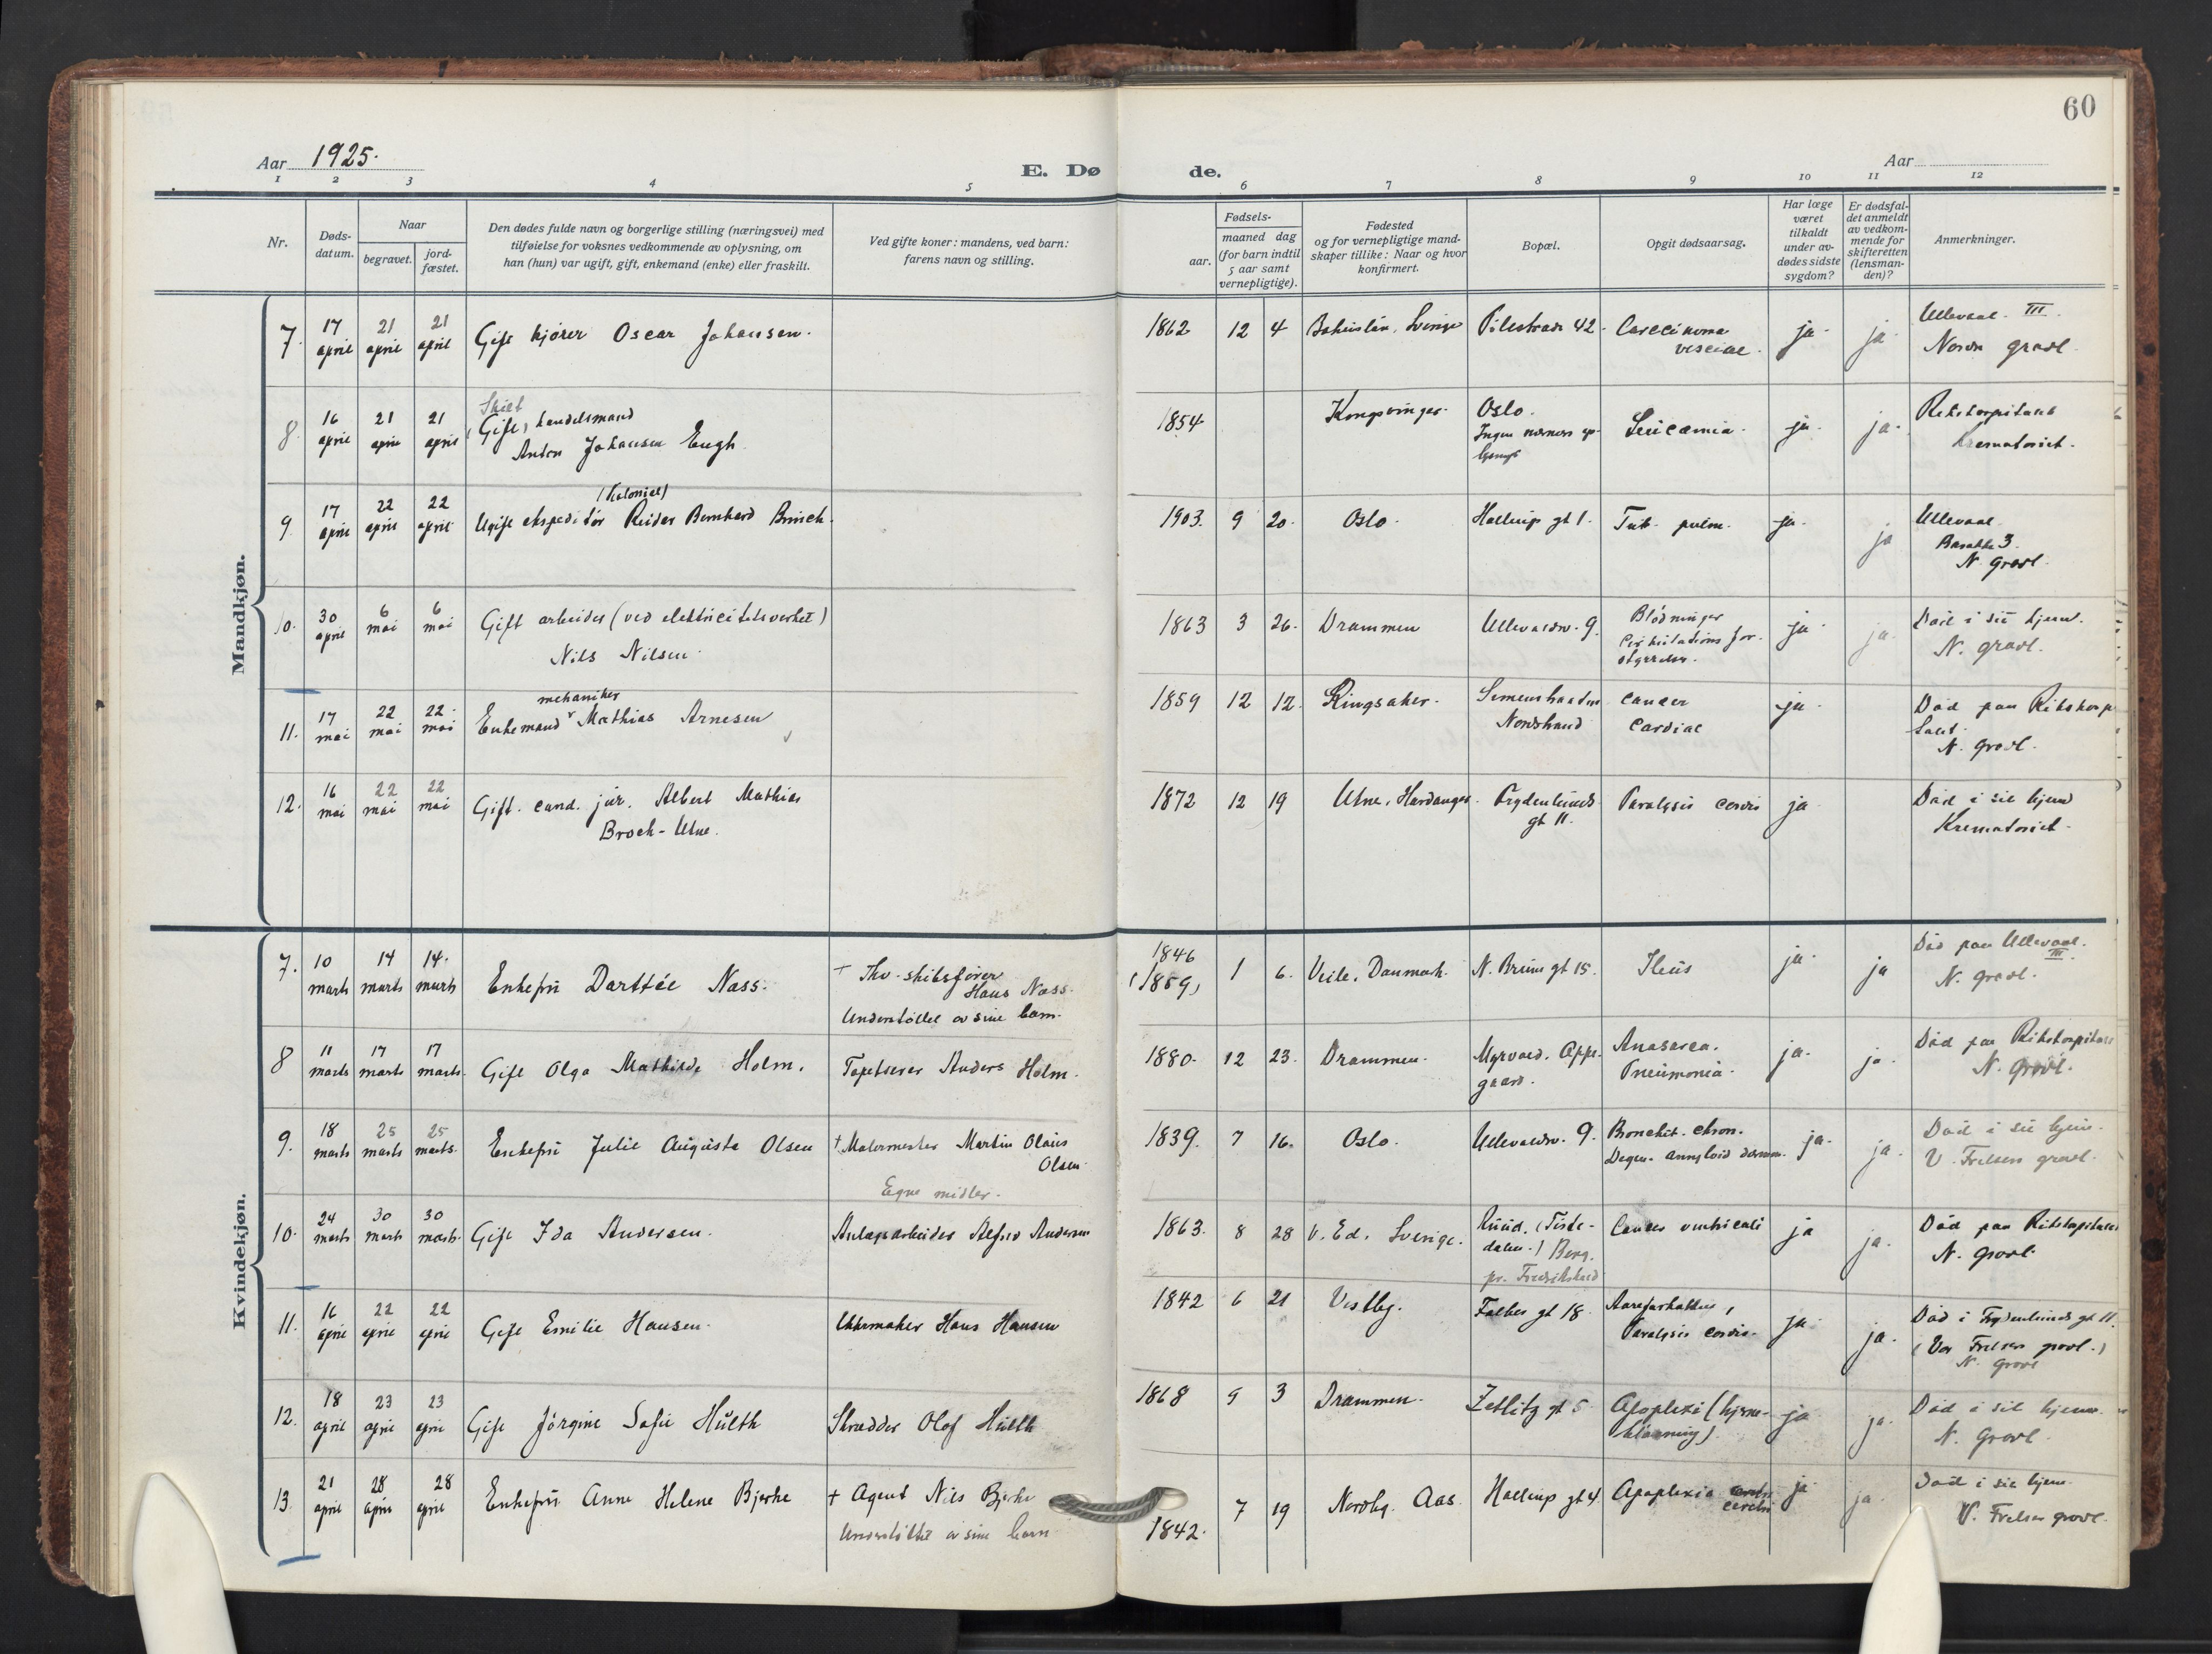 60
Aar 1925.
E. Dø de.
Aar
1 2 3 4 5 6 7 8 9 10 11 12
Nr.
Døds-
datum.
Naar
begravet.
jord-
fæstet.
Den dødes fulde navn og borgerlige stilling (næringsvei) med
tilføielse for voksnes vedkommende av oplysning, om
han (hun) var ugift, gift, enkemand (enke) eller fraskilt.
Ved gifte koner: mandens, ved barn:
farens navn og stilling.
Fødsels-
aar.
maaned dag
(for barn indtil
5 aar samt
vernepligtige).
Fødested
og for vernepligtige mand-
skaper tillike: Naar og hvor
konfirmert.
Bopæl.
Opgit dødsaarsag.
Har læge
været
tilkaldt
under av-
dødes sidste
sygdom?
Er dødsfal-
det anmeldt
av vedkom-
mende for
skifteretten
(lensman-
den)?
Anmerkninger.
Mandkjøn.
7. 17 april 21 april 21 april Gift kjører Oscar Johansen. 1862 12 4 Bohuslän, Sverige Pilestræde 42. Carcinoma
vesicae. ja. ja. Ullevaal. III.
Nordre gravl.
8. 16 april 21 april 21 april Skilt
(Gift) handelsmand
Anton Johansen Engh 1854 Kongsvinger. Oslo.
Ingen nærmere op-
Leucæmia. ja. ja. Rikshospitalet
Krematoriet.
9. 17 april 22 april 22 april (kolonial)
Ugift ekspeditør Reidar Bernhard Brinch. 1903. 9 20. Oslo. Hallings gt 1. Tub. pulm. ja. ja Ullevaal
Barakke 3.
N. gravl.
10. 30 april 6 mai 6 mai Gift arbeider (ved elektricitetsverket)
Nils Nilsen. 1863 3 26. Drammen Ullevaalsv. 9. Blödninger
Cirkulations for-
styrrelser. ja. ja. Død i sit hjem.
N. gravl.
11. 17 mai 22 mai 22 mai mekaniker
Enkemand Mathias Arnesen 1859 12 12. Ringsaker. Simenstranden
Nordstrand cancer
cardiac ja. Død paa Rikshospi
talet.
N. gravl.
12. 16 mai 22 mai 22 mai Gift. cand. jur. Albert Mathias
Broch-Utne. 1872 12 19 Utne, Hardanger. Frydenlunds
gt 11. Paralysis cordis ja Død i sit hjem
Krematoriet.
Kvindekjøn.
7. 10 marts 14 marts 14. marts Enkefru Næss. † Thv. skibsfører
Hans Næss.
Understöttet av sine barn. 1846
(1859) 1 6. Veile. Danmark. N. Bruns gt 15. Ileus ja. ja Død paa Ullevaal.
III.
N. gravl.
8 11 marts 17 marts 17 marts. Gift Olga Mathilde Holm. Tapetserer Anders Holm. 1880. 12 23. Drammen. Myrvold. Oppe-
gaard. Anasarca.
Pneumonia. ja. ja. Død paa Rikshospitalet
N. gravl.
9. 18 marts 25 marts 25 marts. Enkefru Julie Augusta Olsen † Malermester Martin Olaus
Olsen.
Egne midler. 1839. 7 16. Oslo. Ullevaalsv. 9. Bronchit. chron.
Degen. amyloid ja. ja. Død i sit hjem.
V. Frelsers gravl.
10. 24 marts 30 marts 30 marts. Gift Ida Andersen. Anlægsarbeider Alfred Andersen 1863. 8 28 V. Ed. Sverige. Ruud. (Tiste-
dalen.) Berg.
pr. Fredrikshald Cancer ventriculi ja ja. Død paa Rikshospitalet
N. gravl.
11. 16 april 22 april 22 april Gift Emilie Hansen. Uhrmaker Hans Hansen 1842 6 21 Vestby. Falbes gt 18. Aareforkalkn.,
Paralysis cordis. ja. ja. Død i Frydenlunds gt 11.
(Vor Frelsers gravl.)
N. gravl
12. 18 april 23 april 23 april Gift Jörgine Sofie Hulth Skrædder Olof Hulth 1868 9 3 Drammen. Zetlitz gt 5 Apoplexi (hjerne-
blödning) ja ja. Død i sit hjem.
N. gravl.
13. 21 april 28 april 28 april Enkefru Anne Helene Bjerke † Agent Nils Bjerke
Understöttet av sine barn 1842. 7 19 Nordby. Aas. Hallings gt 4 Apoplexia
cerebri ja ja. Død i sit hjem.
V. Frelsers gravl.